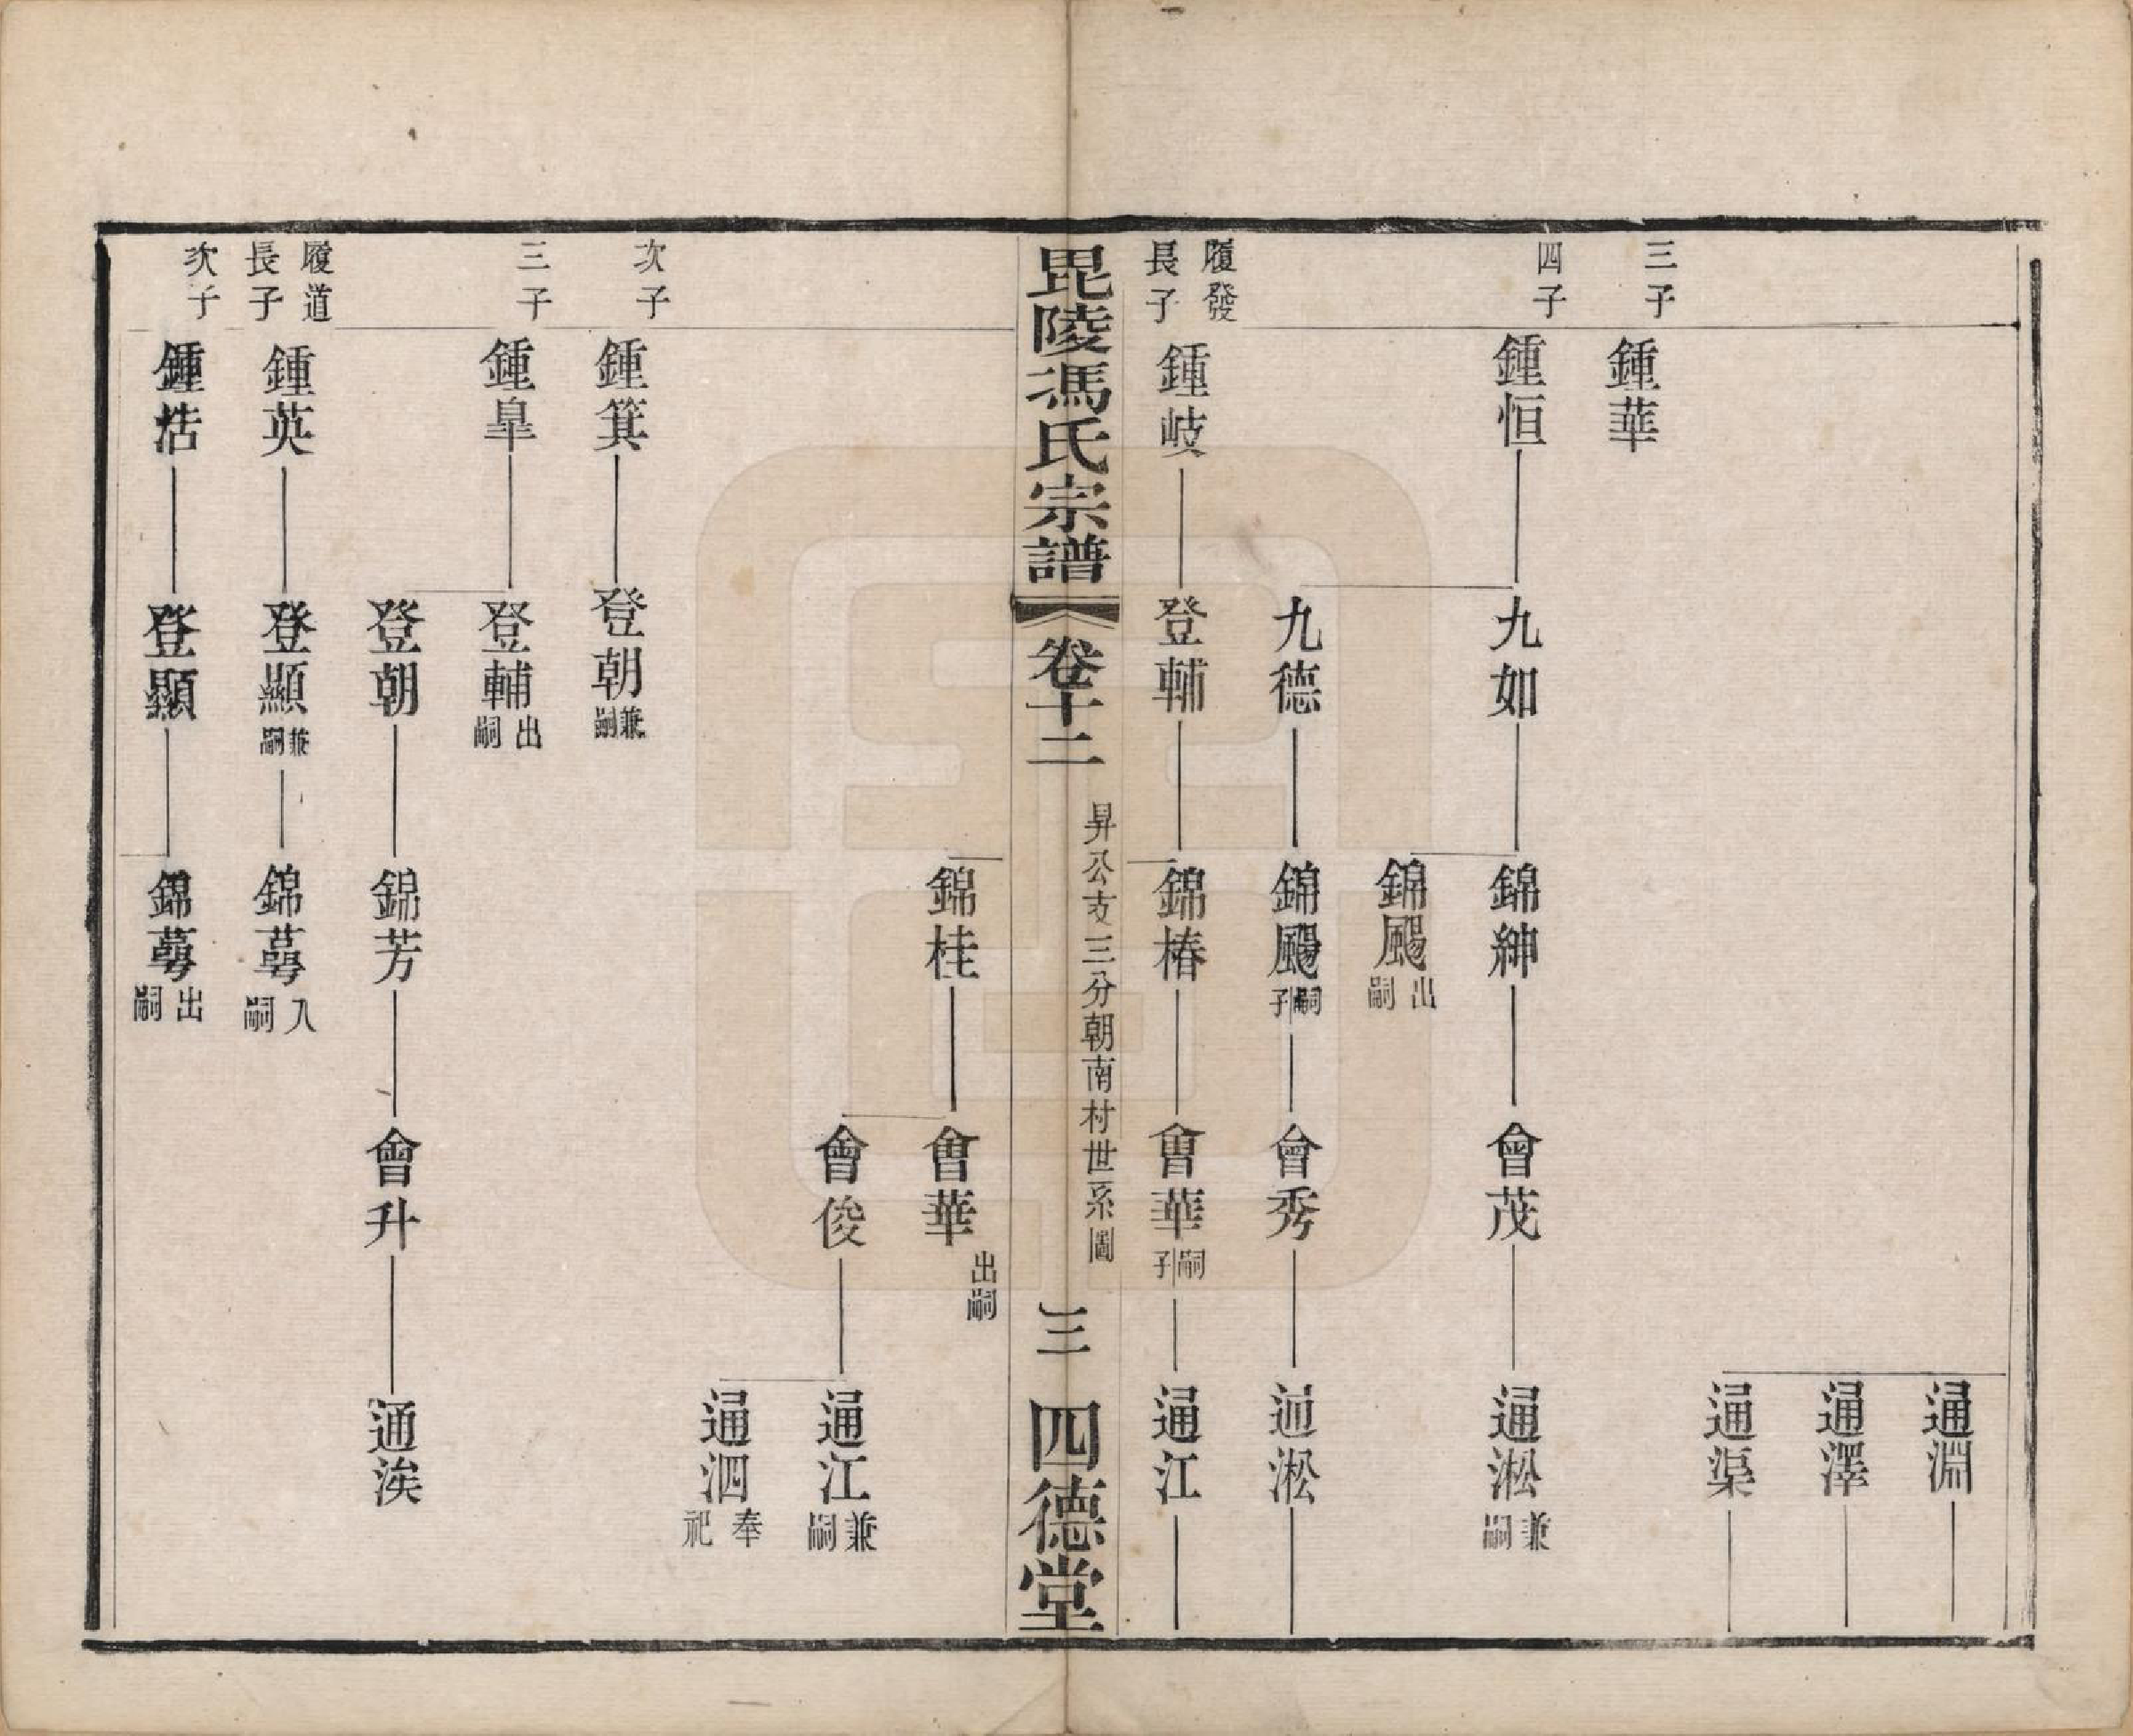 通淵
通澤
通渠
三子
鍾華
四子
鍾恒
九如
錦紳
會茂
通淞
兼嗣
錦颺
出嗣
九德
錦颺
嗣子
會秀
通淞
履發長子
鍾岐
登輔
錦椿
會華
嗣子
通江
毘陵馮氏宗譜
卷十二
昇公支三分朝南村世系圖
三
四德堂
錦桂
會華
出嗣
會俊
通江
兼嗣
通泗
奉祀
次子
鍾箕
登朝
兼嗣
三子
鍾皐
登輔
出嗣
登朝
錦芳
會升
通涘
履道長子
鍾英
登顯
兼嗣
錦蕚
入嗣
次子
鍾浩
登顯
錦蕚
出嗣